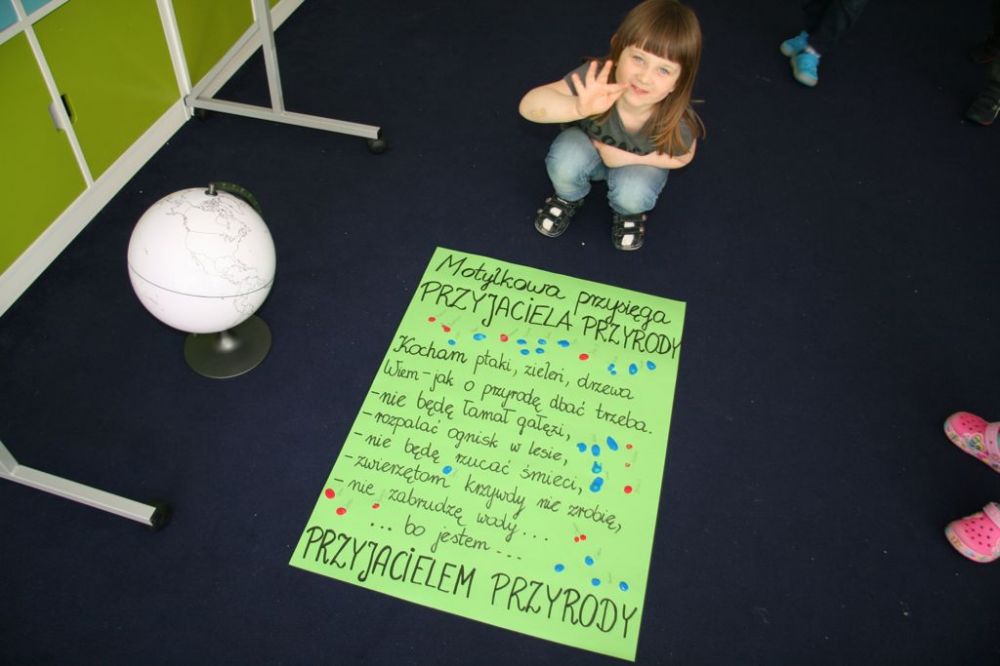 Motylkowa przysięga
PRZYJACIELA PRZYRODY
Kocham ptaki, zieleń, drzewa
Wiem-jak o przyrodę dbać trzeba.
-nie będę łamał gałęzi,
-rozpalać ognisk w lesie,
-nie będę rzucać śmieci,
-zwierzętom krzywdy nie zrobię,
-nie zabrudzę wody...
... bo jestem...
PRZYJACIELEM PRZYRODY